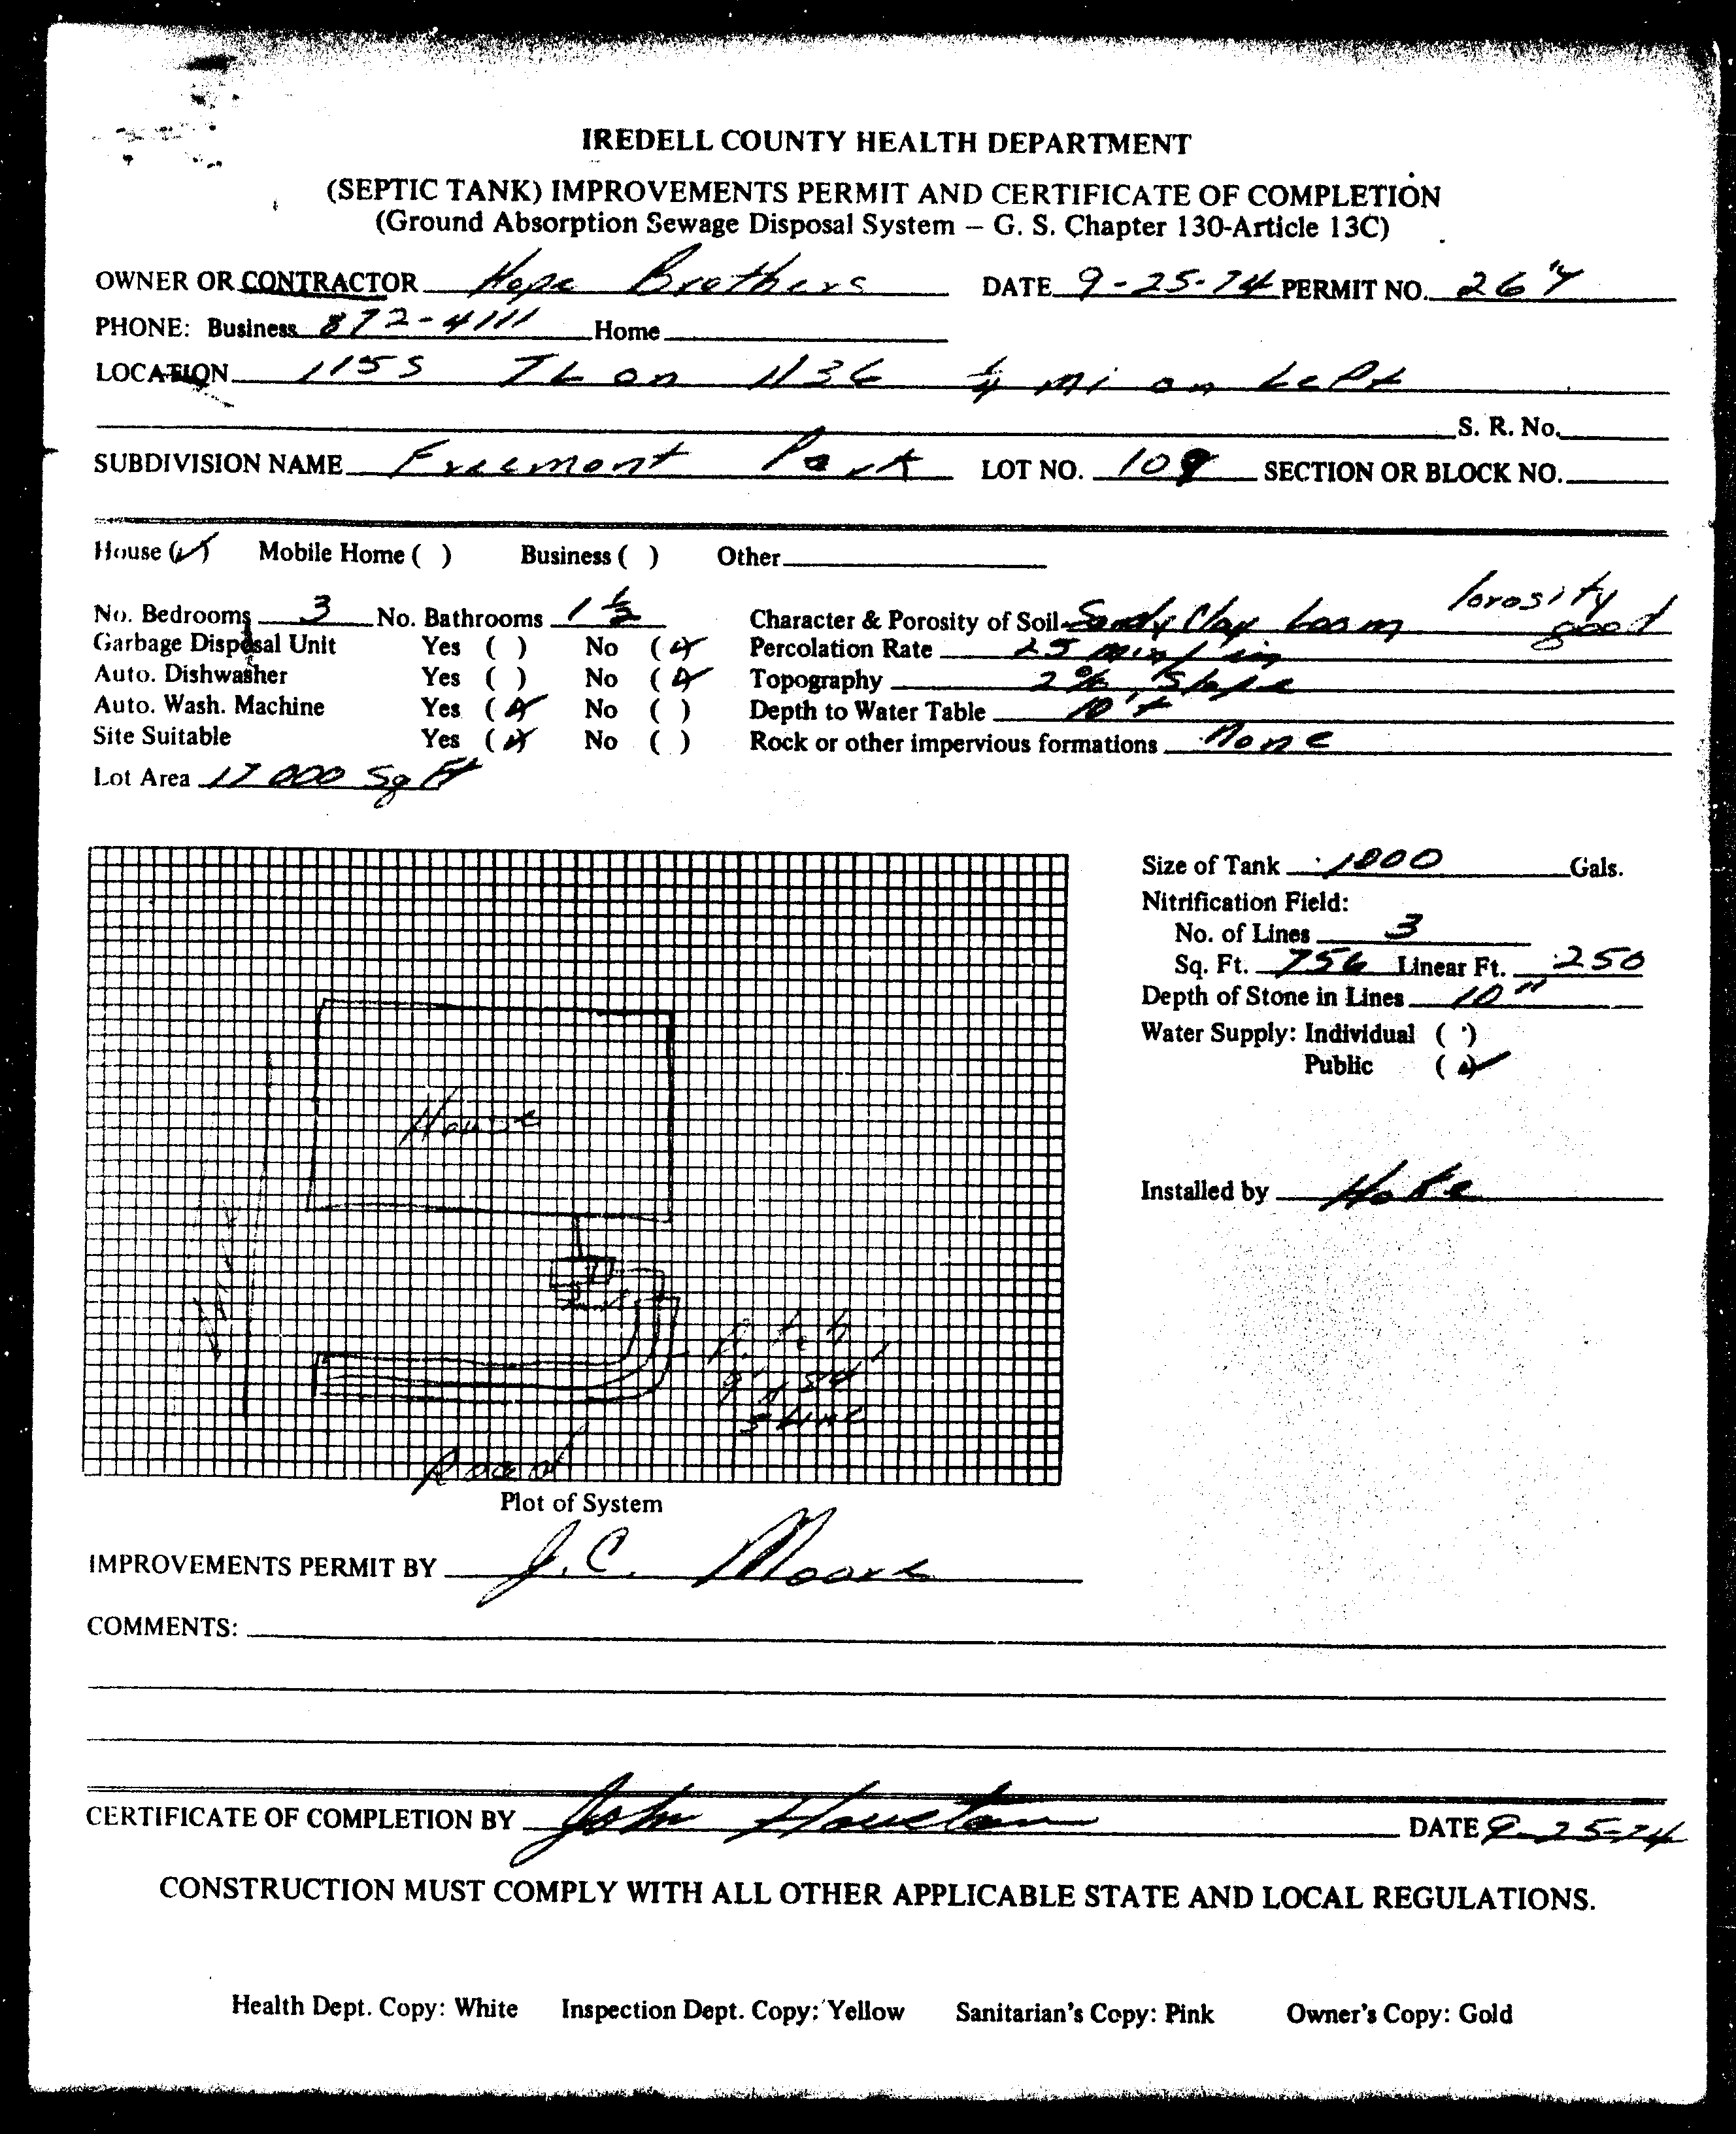 IREDELL COUNTY HEALTH DEPARTMENT
(SEPTIC TANK) IMPROVEMENTS PERMIT AND CERTIFICATE OF COMPLETION
(Ground Absorption Sewage Disposal System – G. S. Chapter 130-Article 13C)
OWNER OR CONTRACTOR Hope Brothers DATE 9-25-74 PERMIT NO. 264
PHONE: Business 872-4111 Home
LOCATION 1155 TL on 1136 1/4 mi on Left
S. R. No.
SUBDIVISION NAME Freemont Park LOT NO. 109 SECTION OR BLOCK NO.
House (✓) Mobile Home ( ) Business ( ) Other
No. Bedrooms 3 No. Bathrooms 1 1/2 Character & Porosity of Soil Sandy Clay Loam Porosity good
Garbage Disposal Unit Yes ( ) No (✓) Percolation Rate 25 min/in
Auto. Dishwasher Yes ( ) No (✓) Topography 2% Slope
Auto. Wash. Machine Yes (✓) No ( ) Depth to Water Table 10'+
Site Suitable Yes (✓) No ( ) Rock or other impervious formations None
Lot Area 17000 Sq Ft
Size of Tank 1000 Gals.
Nitrification Field:
No. of Lines 3
Sq. Ft. 756 Linear Ft. 250
Depth of Stone in Lines 10"
Water Supply: Individual ( )
Public (✓)
Installed by Hope
House
Tank
3 Line
Road
Plot of System
IMPROVEMENTS PERMIT BY J.C. Moore
COMMENTS:
CERTIFICATE OF COMPLETION BY John Houston DATE 9-25-74
CONSTRUCTION MUST COMPLY WITH ALL OTHER APPLICABLE STATE AND LOCAL REGULATIONS.
Health Dept. Copy: White Inspection Dept. Copy: Yellow Sanitarian's Copy: Pink Owner's Copy: Gold